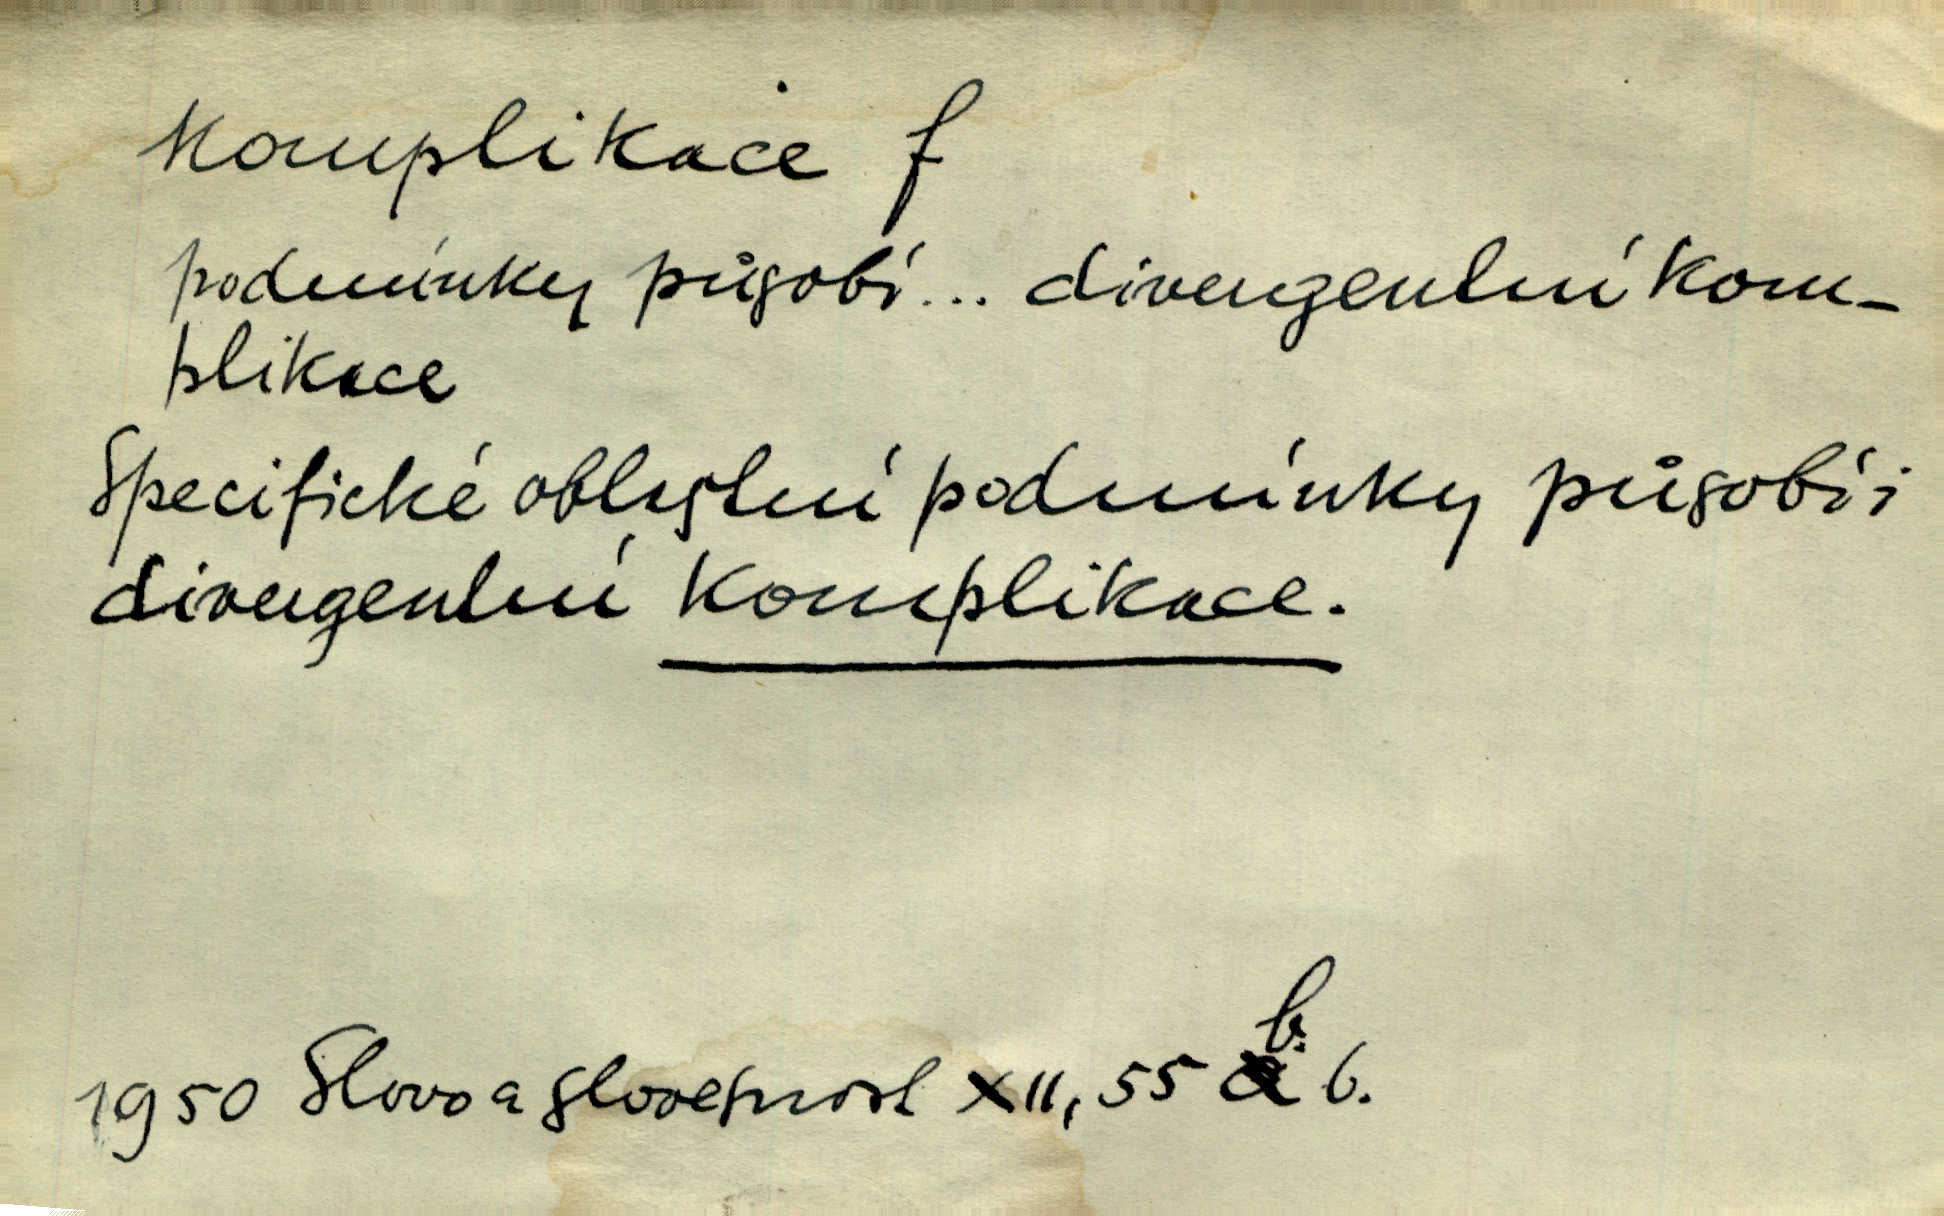 Komplikace f
podmínky působí... divergentní kom-
plikace
Specifické oblastní podmínky působí i
divergentní komplikace.
1950 Slovo a slovesnost XII, 55 b. b.